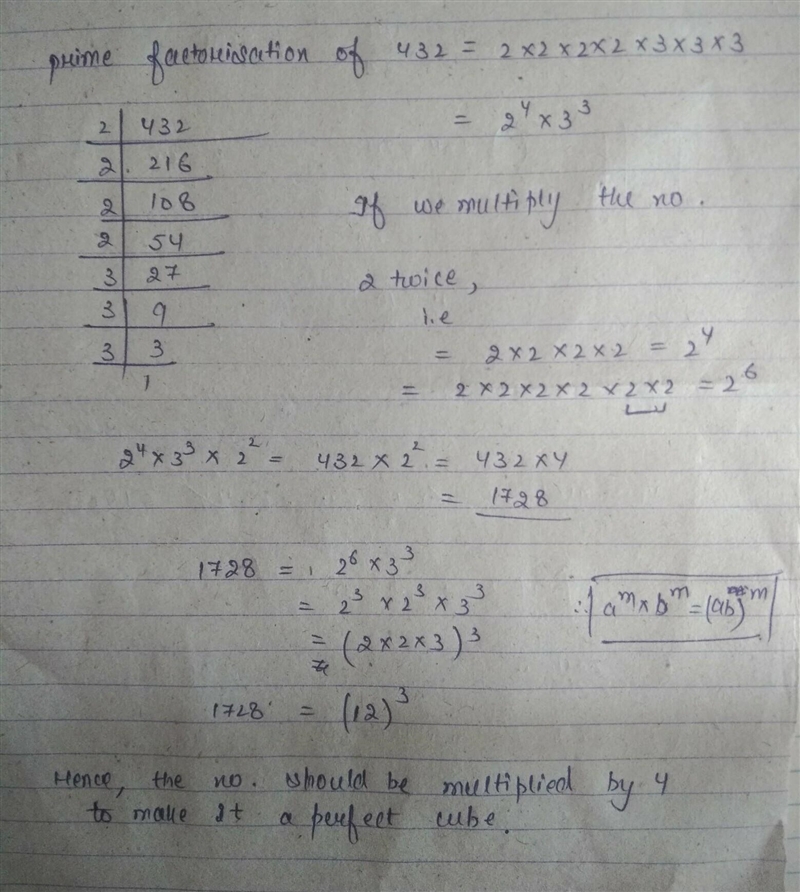 prime factorisation of 432 = 2×2×2×2×3×3×3
= 2⁴×3³
2 | 432
2 | 216
2 | 108
2 | 54
3 | 27
3 | 9
3 | 3
1
If we multiply the no.
2 twice,
i.e
= 2×2×2×2 = 2⁴
= 2×2×2×2×2×2 = 2⁶
2⁴×3³×2² = 432×2² = 432×4
= 1728
1728 = 2⁶×3³
= 2³×2³×3³
= (2×2×3)³
∴ aᵐ×bᵐ=(ab)ᵐ
1728 = (12)³
Hence, the no. should be multiplied by 4
to make it a perfect cube.